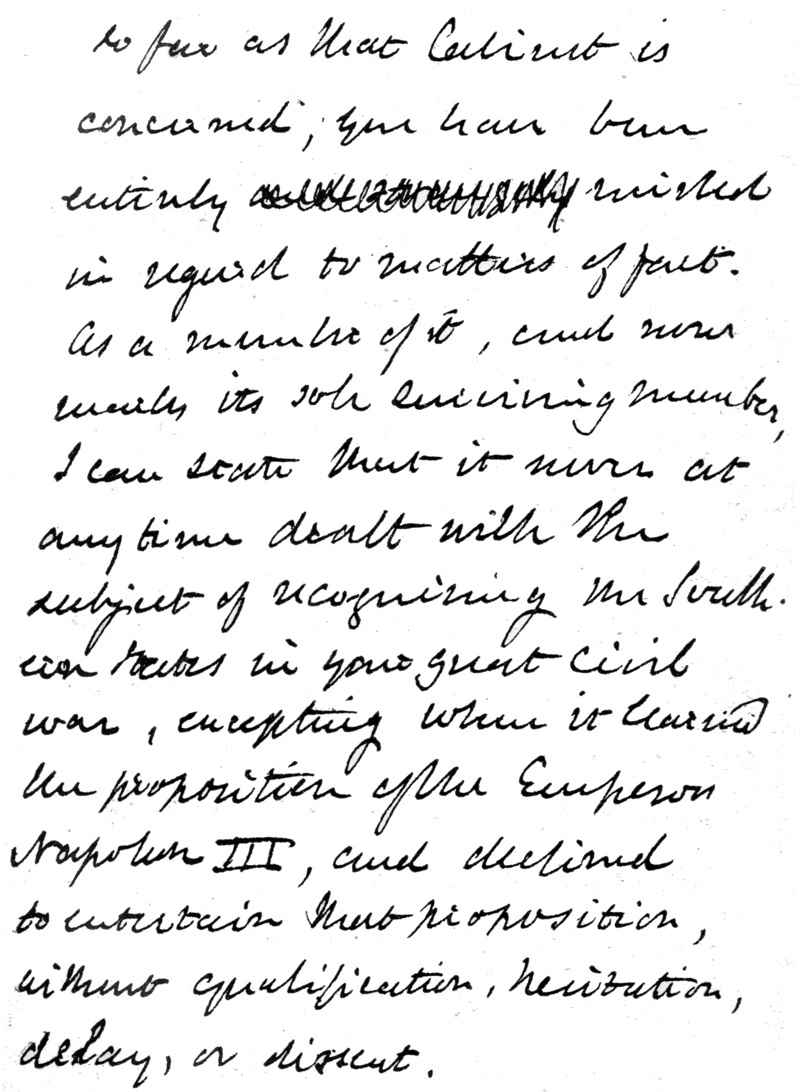 so far as that Cabinet is
concerned, you have been
entirely misled
in regard to matters of fact.
As a member of it, and now
nearly its sole surviving member,
I can state that it never at
any time dealt with the
subject of recognising the South-
ern States in your great civil
war, excepting when it learned
the proposition of the Emperor
Napoleon III, and declined
to entertain that proposition,
without qualification, hesitation,
delay, or dissent.